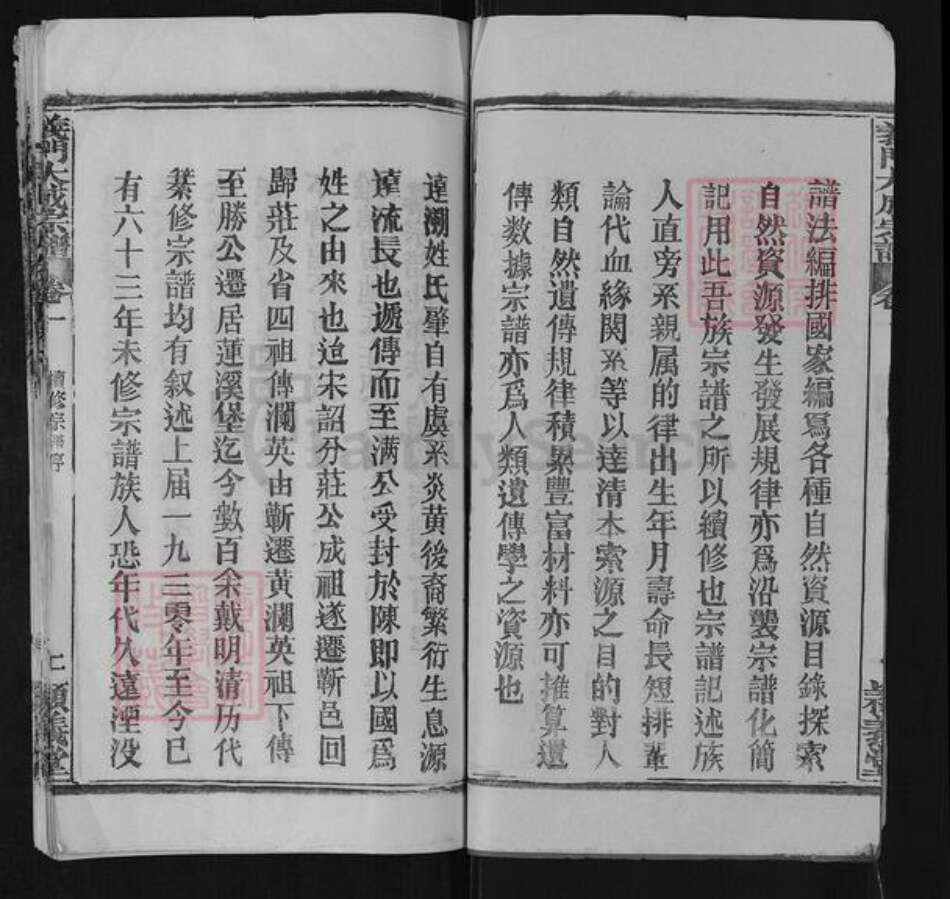 譜法編排國家編寫各種自然資源目錄探索
自然資源發生發展規律亦爲沿襲宗譜化簡
記用此吾族宗譜之所以續修也宗譜記述族
人直旁系親属的律出生年月壽命長短排輩
論代血緣関系等以達清本索源之目的對人
類自然遺傳規律積累豐富材料亦可推算遺
傳数據宗譜亦爲人類遺傳學之資源也
遠溯姓氏肇自有虞系炎黄後裔繁衍生息源
遠流長也遞傳而至满公受封於陳即以國爲
姓之由來也迨宋詔分莊公成祖遂遷蘄邑回
歸莊及省四祖傳瀾英由蘄遷黄瀾英祖下傳
至勝公遷居蓮溪堡迄今數百余戴明清历代
纂修宗譜均有叙述上届一九三零年至今已
有六十三年未修宗譜族人恐年代久遠湮没
義門大成宗譜 卷一 續修宗譜序
FamilySearch